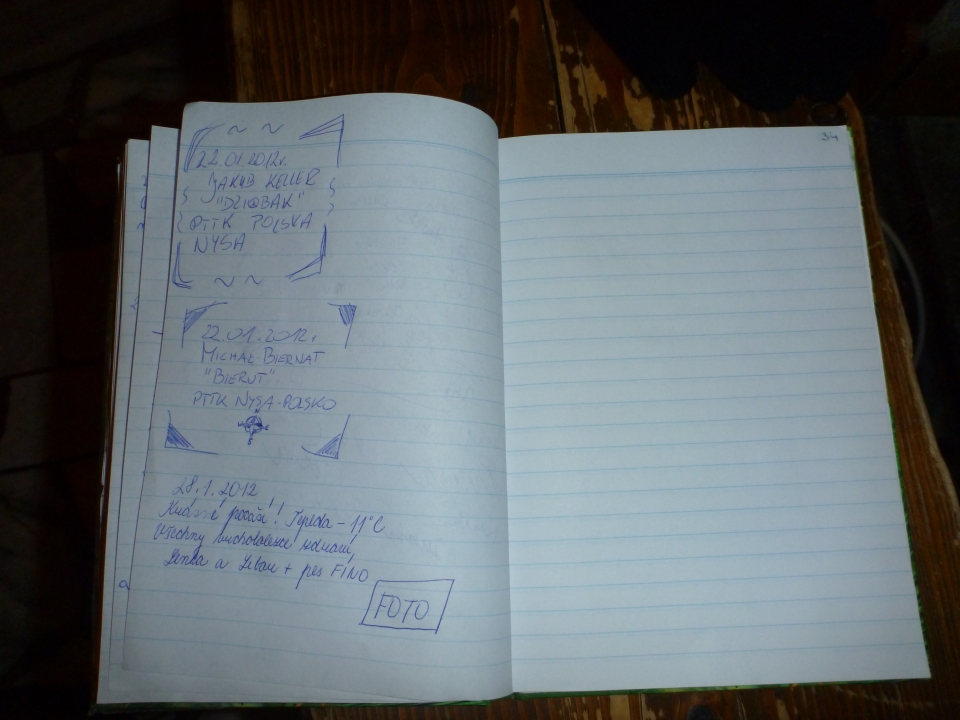 22.01.2012r.
JAKUB KELLER
"DZIOBAK"
PTTK POLSKA
NYSA
22.01.2012r.
MICHAŁ BIERNAT
"BIERUT"
PTTK NYSA-POLSKO
28.1.2012
Krásné počasí! Teplota -11°C
Všechny vrchololezce zdraví,
Lenka a Libor + pes FINO
FOTO
34